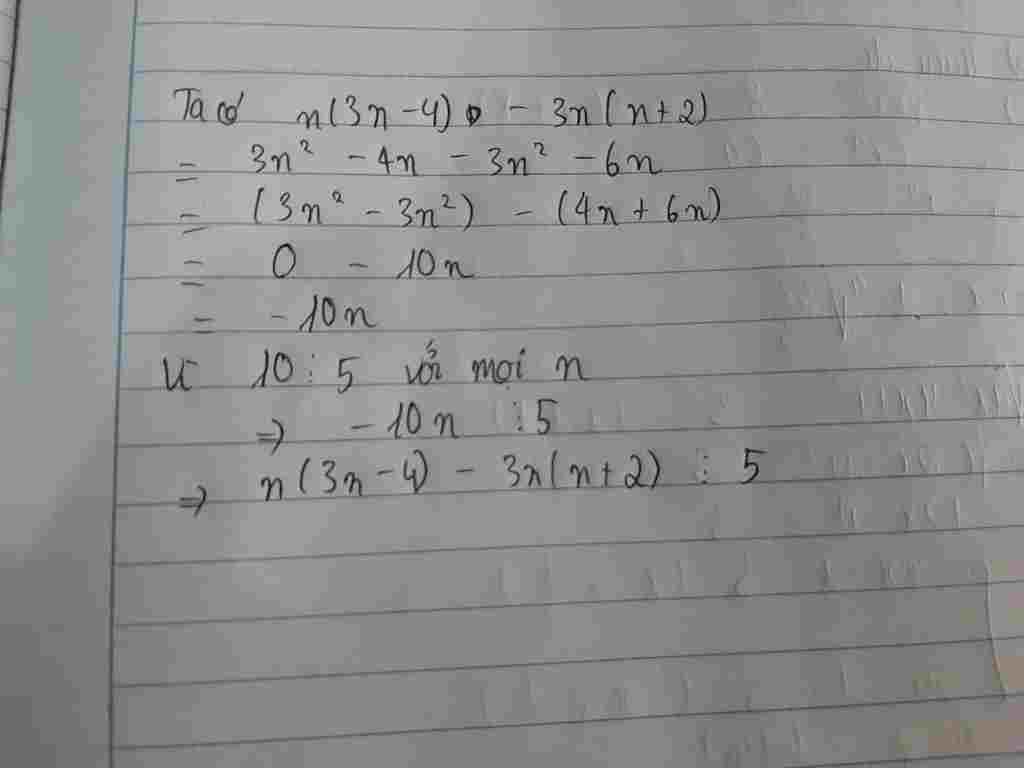 Ta có n(3n-4) - 3n(n+2)
= 3n² - 4n - 3n² - 6n
= (3n² - 3n²) - (4n + 6n)
= 0 - 10n
= -10n
Vì 10 ⋮ 5 với mọi n
⇒ -10n ⋮ 5
⇒ n(3n-4) - 3n(n+2) ⋮ 5